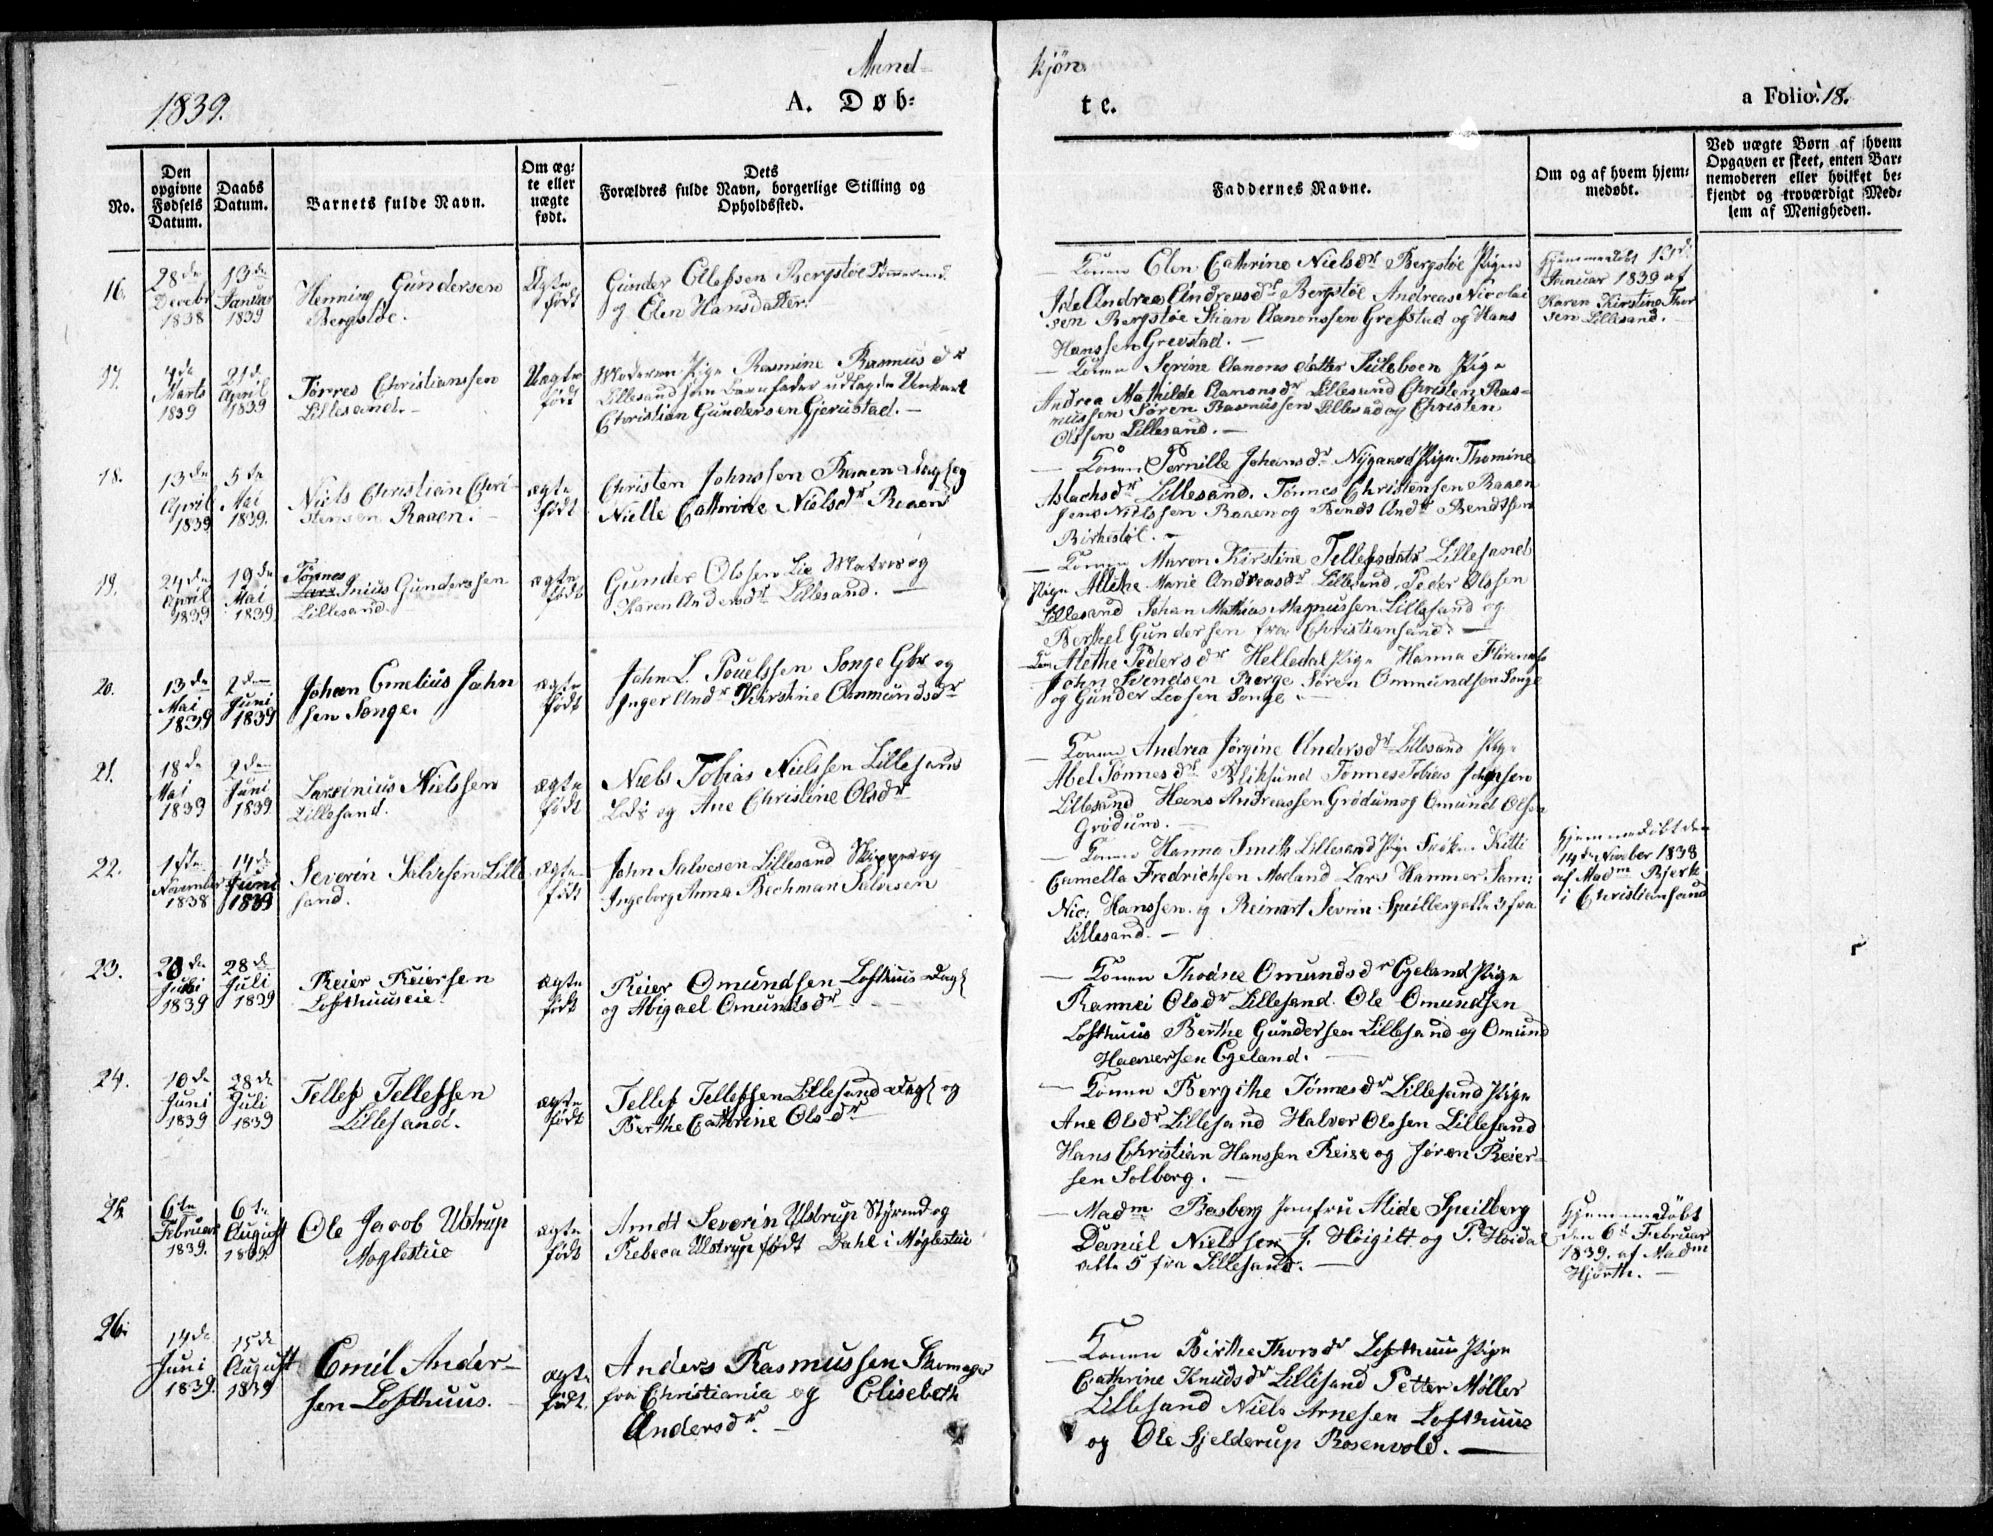 Mand-
kjön.
1839.
A. Døb=
te.
a Folio 18.
No.
Den
opgivne
Fødsels
Datum.
Daabs
Datum.
Barnets fulde Navn.
Om æg=
te eller
uægte
født.
Dets
Forældres fulde Navn, borgerlige Stilling og
Opholdssted.
Faddernes Navne.
Om og af hvem hjem=
medøbt.
Ved uægte Børn af hvem
Opgaven er skeet, enten Bar=
nemoderen eller hvilket be=
kjendt og troværdigt Med=
lem af Menigheden.
16.
28de
Decebr
1838
13de
Januar
1839
Henning Gundersen
Bergstøe.
Ægte
født
Gunder Ollefsen Bergstøe
og Elen Hansdatter.
Konen Elen Cathrine Nielsdr Bergstøe Pigen
Ide Andrea Andreasdr Bergstøe Andreas Nicolai
sen Bergstøe Stian Aanonssen Grefstad og Hans
Hanssen Grevstad.
Hjemmedøbt 13de
Januar 1839 af
Karen Kirstine Thor
sen Lillesand.
17.
4de
Marts
1839
21de
April
1839
Tørres Christianssen
Lillesand.
Uægte
født
Moderen Pige Rasmine Rasmusdr
Lillesand som Barnefader udlagde Unkarl
Christian Gundersen Gjerustad.
Konen Serine Aanonsdatter Puleboen Pige
Andrea Mathilde Aanonsdr Lillesand Christen Ras-
mussen Søren Rasmussen Lillesad og Christen
Olssen Lillesand.
18.
13de
April
1839
5te
Mai
1839.
Niels Christian Chri-
stensen Raaen.
ægte
født
Christen Johnssen Raaen Dags og
Nielle Cathrine Nielsdr Raaen
Konen Pernille Johansdr Nygaard Pige Thomine
Aslachsdr Lillesand. Tønnes Christensen Raaen
Jens Nielssen Raaen og Bendt Andr Bendtsen
Birkestøl.
19.
24de
April
1839
19de
Mai
1839
Tønnes
Lars Inius Gunderssen
Lillesand.
ægte
født
Gunder Olssen Lie Matros og
Karen Andersdr Lillesand.
Konen Maren Kirstine Tellefsdatr Lillesand
Pige Allethe Marie Andreasdr Lillesand Peder Olssen
Lillesand Johan Mathias Magnussen Lillesand og
Berthel Gundersen fra Christiansand.
20.
13de
Mai
1839
2den
Juni
1839
Johan Emelius John
sen Songe.
ægte
født
John L. Pouelssen Songe Gbr og
Inger Andr Kirstine Ommundsdr
Kon Alethe Pedersdr Helledal Pige Hanna
John Svendsen Berge Søren Ommundsen Songe
og Gunder Leosen Songe
21.
18de
Mai
1839
2den
Juni
1839
Larsinius Nielssen
Lillesand.
ægte
født
Niels Tobias Nielssen Lillesand
Lods og Ane Christine Olsdr
Konen Andrea Jørgine Andersdr Lillesand Pige
Abel Tønnesdr Bliksund Tønnes Tobias Johnsen
Lillesand Hans Andreassen Grødum og Omund Olsen
Grødum.
22.
1ste
November
1838
14de
Juni
1839
Severin Salvesen Lille
sand.
ægte
født
John Salvesen Lillesand Skipper og
Ingeborg Anna Bechman Salvesen
Konen Hanna Smith Lillesand Pige Frøken Kitti
Camella Fredrichsen Morland Lars Hammer Sam:
Nic: Hanssen og Reinart Severin Speilberg alle 3 fra
Lillesand.
Hjemmedøbt den
14de Novber 1838
af Madm Bjerk
i Christiansand
23.
20de
Juni
1839
28de
Juli
1839
Reier Reiersen
Lofthuuseie.
ægte
født
Reier Omundsen Lofthuus Dags
og Abigael Omundsdr
Konen Thodne Omundsdr Egeland Pige
Rannei Olsdr Lillesand Ole Omundsen
Lofthuus Berthe Gundersen Lillesand og Omund
Haaversen Egeland.
24.
10de
Juni
1839
28de
Juli
1839
Tellef Tellefsen
Lillesand.
ægte
født
Tellef Tellefsen Lillesand Dags og
Berthe Cathrine Olsdr
Konen Bergithe Tønnesdr Lillesand Pige
Ane Olsdr Lillesand Halvor Olssen Lillesand
Hans Christian Hanssen Reise og Jøren Reier-
sen Solberg.
25.
6te
Februar
1839.
6te
August
1839
Ole Jacob Ulstrup
Møglestue
ægte
født
Arndt Severin Ulstrup Styrmd og
Rebeca Ulstrup født Dahl i Møglestue
Madm Basberg Jomfru Alide Speilberg
Daniel Nielssen J. Høigilt og P. Høidal
alle 5 fra Lillesand.
Hjemmedøbt
den 6te Februar
1839. af Madm
Hjorth.
26.
14de
Juni
1839.
15de
August
1839
Emil Ander-
sen Lofthuus.
ægte
født.
Anders Rasmussen Skomager
fra Christiania og Elisebeth
Andersdr.
Konen Birthe Thorsdr Lofthuus Pige
Cathrine Knudsdr Lillesand Petter Møller
Lillesand Niels Arnesen Lofthuus
og Ole Sjelderup Rosenvold.